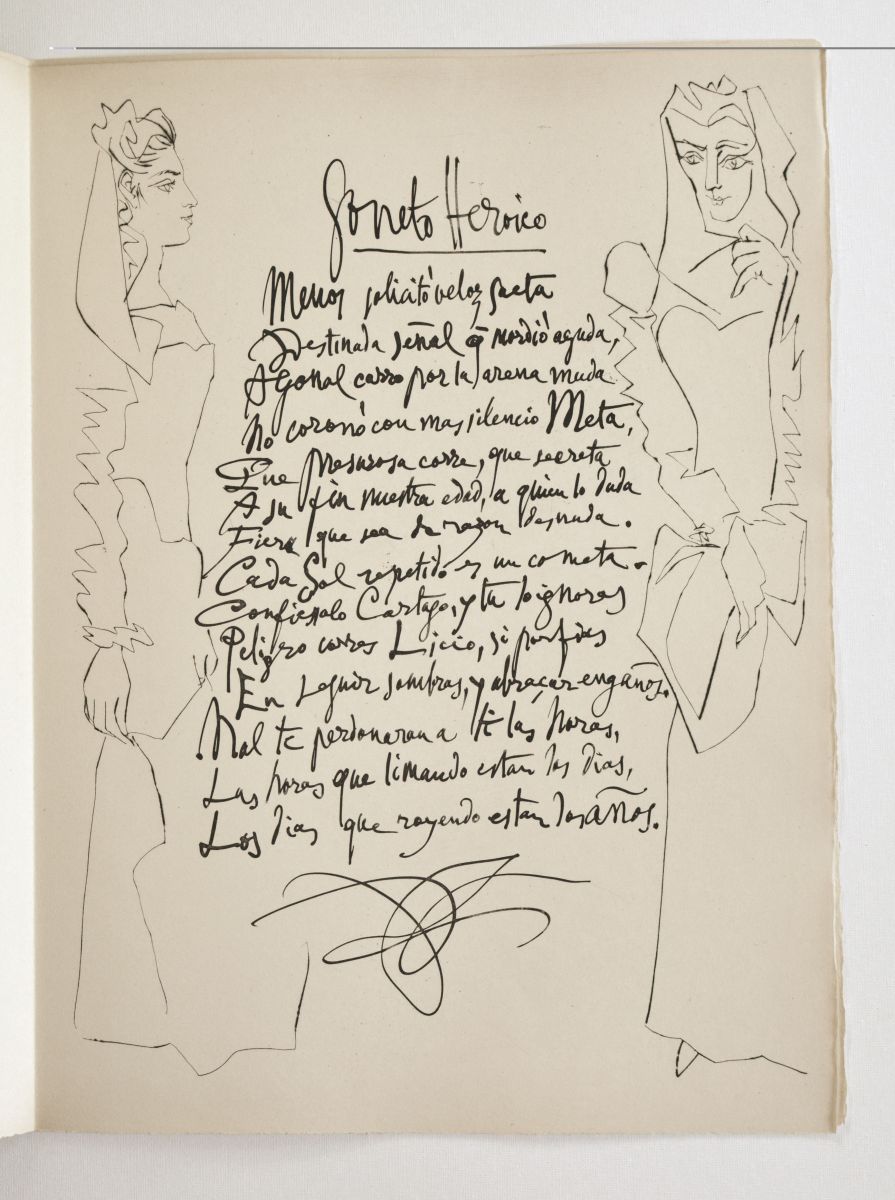 Soneto Heroico
Menos solicitó veloz saeta
Destinada señal q̃ mordió aguda,
Agonal carro por la arena muda
No coronó con mas silencio Meta,
Que presurosa corre, que secreta
A su fin nuestra edad, a quien lo duda
Fiera que sea de razon desnuda.
Cada Sol repetido es un cometa.
Confiessalo Cartago, y tu lo ignoras
Peligro corres Licio, si porfias
En seguir sombras, y abraçar engaños.
Mal te perdonaran a ti las horas,
Las horas que limando estan los dias,
Los dias que royendo estan los años.